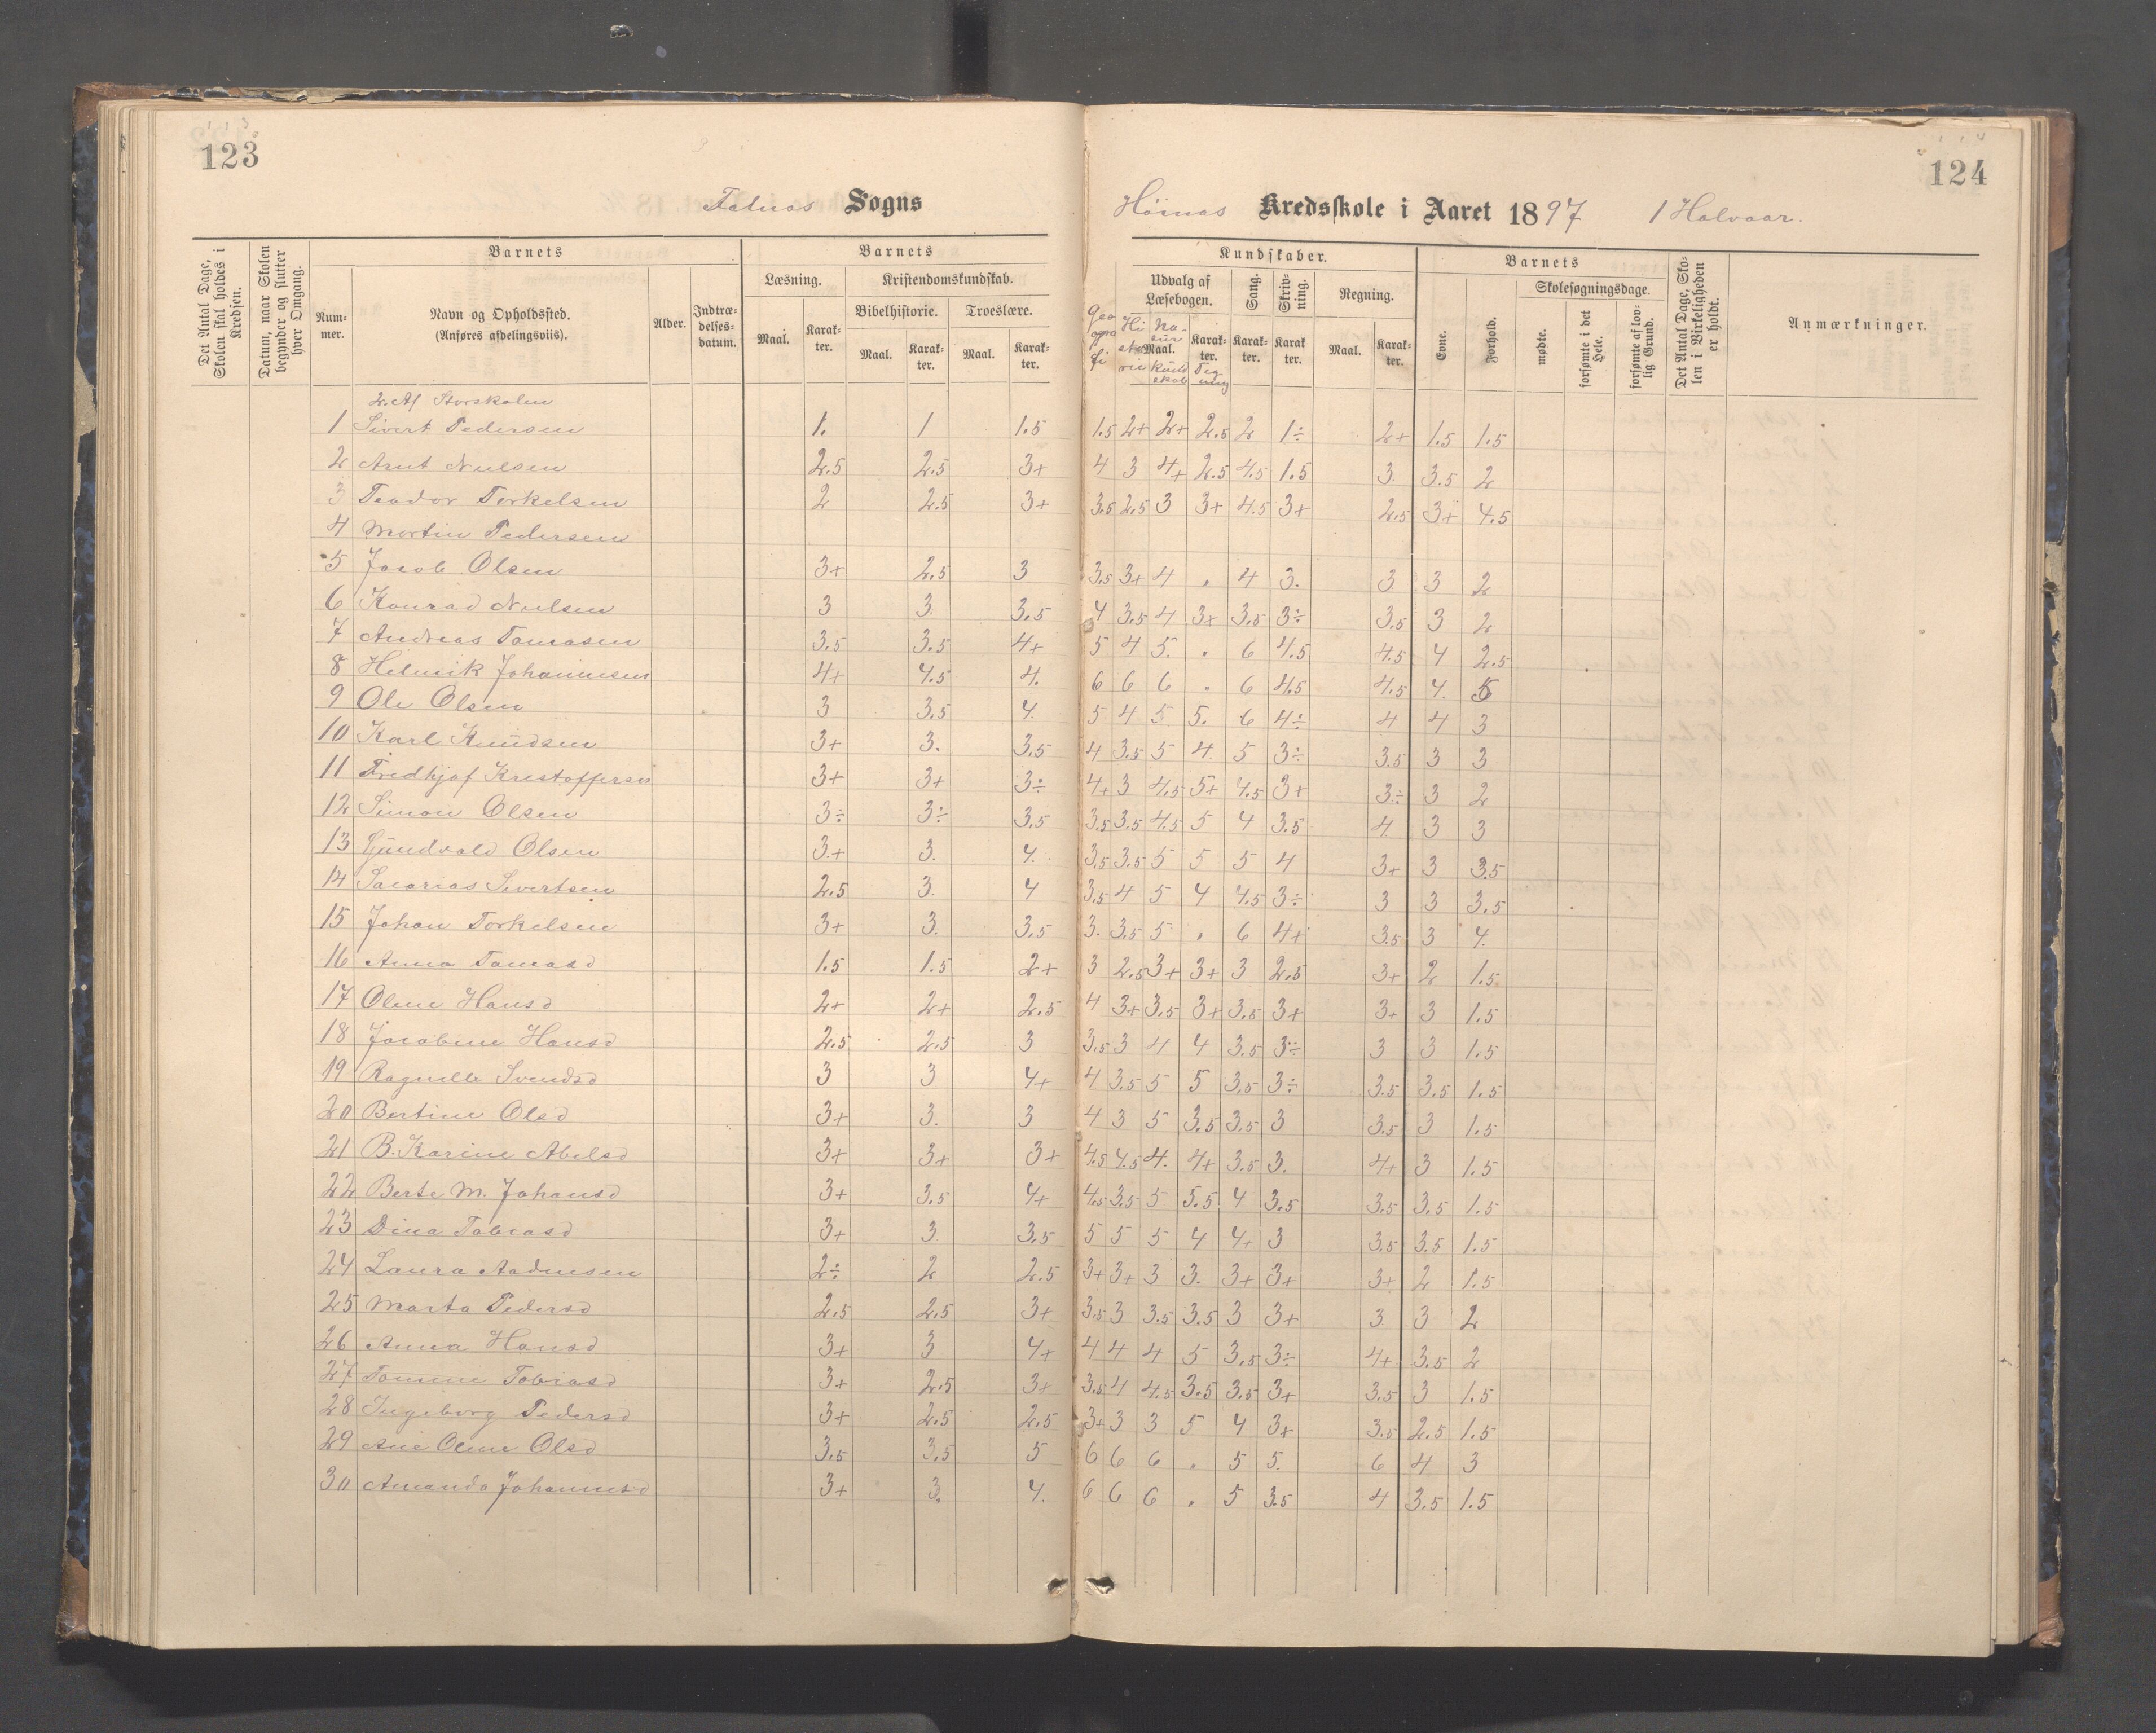 123
124
Falnes Sogns
Höines Kredsskole i Aaret 1897 1 Halvaar.
Det Antal Dage, Skolen skal holdes i Kredsen.
Datum, naar Skolen begynder og slutter hver Omgang.
Barnets
Nummer.
Navn og Opholdssted.
(Anføres afdelingsviis).
Alder.
Indtrædelsesdatum.
Barnets
Læsning.
Maal.
Karakter.
Kristendomskundskab.
Bibelhistorie.
Maal.
Karakter.
Troeslære.
Maal.
Karakter.
Kundskaber.
Udvalg af Læsebogen.
Geografi
Historie
Maal.
Naturkundskab
Karakter.
Tegning
Sang.
Karakter.
Skrivning.
Karakter
Regning.
Maal.
Karakter.
Barnets
Evne.
Forhold.
Skolesøgningsdage.
mødte.
forsømte i det Hele.
forsømte af lovlig Grund.
Det Antal Dage, Skolen i Virkeligheden er holdt.
Anmærkninger.
2. Af Storskolen
1 Sivert Pedersen 1. 1 1.5 1.5 2+ 2+ 2.5 2 1÷ 2+ 1.5 1.5
2 Arnt Nielsen 2.5 2.5 3+ 4 3 4+ 2.5 4.5 1.5 3. 3.5 2
3 Teodor Torkelsen 2 2.5 3+ 3.5 2.5 3 3+ 4.5 3+ 2.5 3+ 4.5
4 Martin Pedersen
5 Jacob Olsen 3+ 2.5 3 3.5 3+ 4 . 4 3. 3 3 2
6 Konrad Nielsen 3 3 3.5 4 3.5 4 3+ 3.5 3÷ 3.5 3 2
7 Andreas Tomasen 3.5 3.5 4+ 5 4 5. . 6 4.5 4.5 4 2.5
8 Helmik Johannesen 4+ 4.5 4. 6 6 6 . 6 4.5 4.5 4. 5
9 Ole Olsen 3 3.5 4. 5 4 5 5. 6 4÷ 4 4 3
10 Karl Knudsen 3+ 3. 3.5 4 3.5 5 4. 5 3÷ 3.5 3 3
11 Fredhjof Kristoffersen 3+ 3+ 3÷ 4+ 3 4.5 5+ 4.5 3+ 3÷ 3 2
12 Simon Olsen 3÷ 3÷ 3.5 3.5 3.5 4.5 5 4 3.5 4. 3 3
13 Gundvald Olsen 3.+ 3. 4. 3.5 3.5 5 5 5 4 3+ 3 3.5
14 Sacarias Sivertsen 2.5 3. 4 3.5 4 5 4 4.5 3÷ 3 3 3.5
15 Johan Torkelsen 3+ 3. 3.5 3. 3.5 5 . 6 4+ 3.5 3 4.
16 Anna Tomasd 1.5 1.5 2+ 3 2.5 3+ 3+ 3 2.5 3+ 2 1.5
17 Oline Hansd 2+ 2+ 2.5 4 3+ 3.5 3+ 3.5 3+ 3+ 3 1.5
18 Jacobine Hansd 2.5 2.5 3 3.5 3 4 4 3.5 3÷ 3 3 1.5
19 Ragnille Svendsd 3 3 4+ 4 3.5 5 5 3.5 3÷ 3.5 3.5 1.5
20 Bertine Olsd 3+ 3. 3 4 3 5 3.5 3.5 3 3.5 3 1.5
21 B. Karine Abelsd 3+ 3+ 3+ 4.5 4.5 4. 4+ 3.5 3. 4+ 3 1.5
22 Berte M. Johansd 3+ 3.5 4+ 4.5 3.5 5 5.5 4 3.5 3.5 3.5 1.5
23 Dina Tobiasd 3+ 3 3.5 5 5 5 4 4+ 3 3.5 3.5 1.5
24 Laura Aadnesen 2÷ 2 2.5 3+ 3+ 3 3. 3+ 3+ 3+ 2 1.5
25 Marta Pedersd 2.5 2.5 3+ 3.5 3 3.5 3.5 3 3+ 3. 3 2
26 Anna Hansd 3+ 3 4+ 4 4 4 5 3.5 3÷ 4+ 3.5 2
27 Tomine Tobiasd 3+ 2.5 3+ 3.5 4 4.5 3.5 3.5 3+ 3.5 3 1.5
28 Ingeborg Pedersd 3+ 2.5 2.5 3+ 3 3 5 4 3+ 3.5 2.5 1.5
29 Ane Oline Olsd 3.5 3.5 5 6 6 6 . 5 5. 6 4 3
30 Amanda Johannesd 3+ 3. 4. 6 6 6 . 5 3.5 4 3.5 1.5